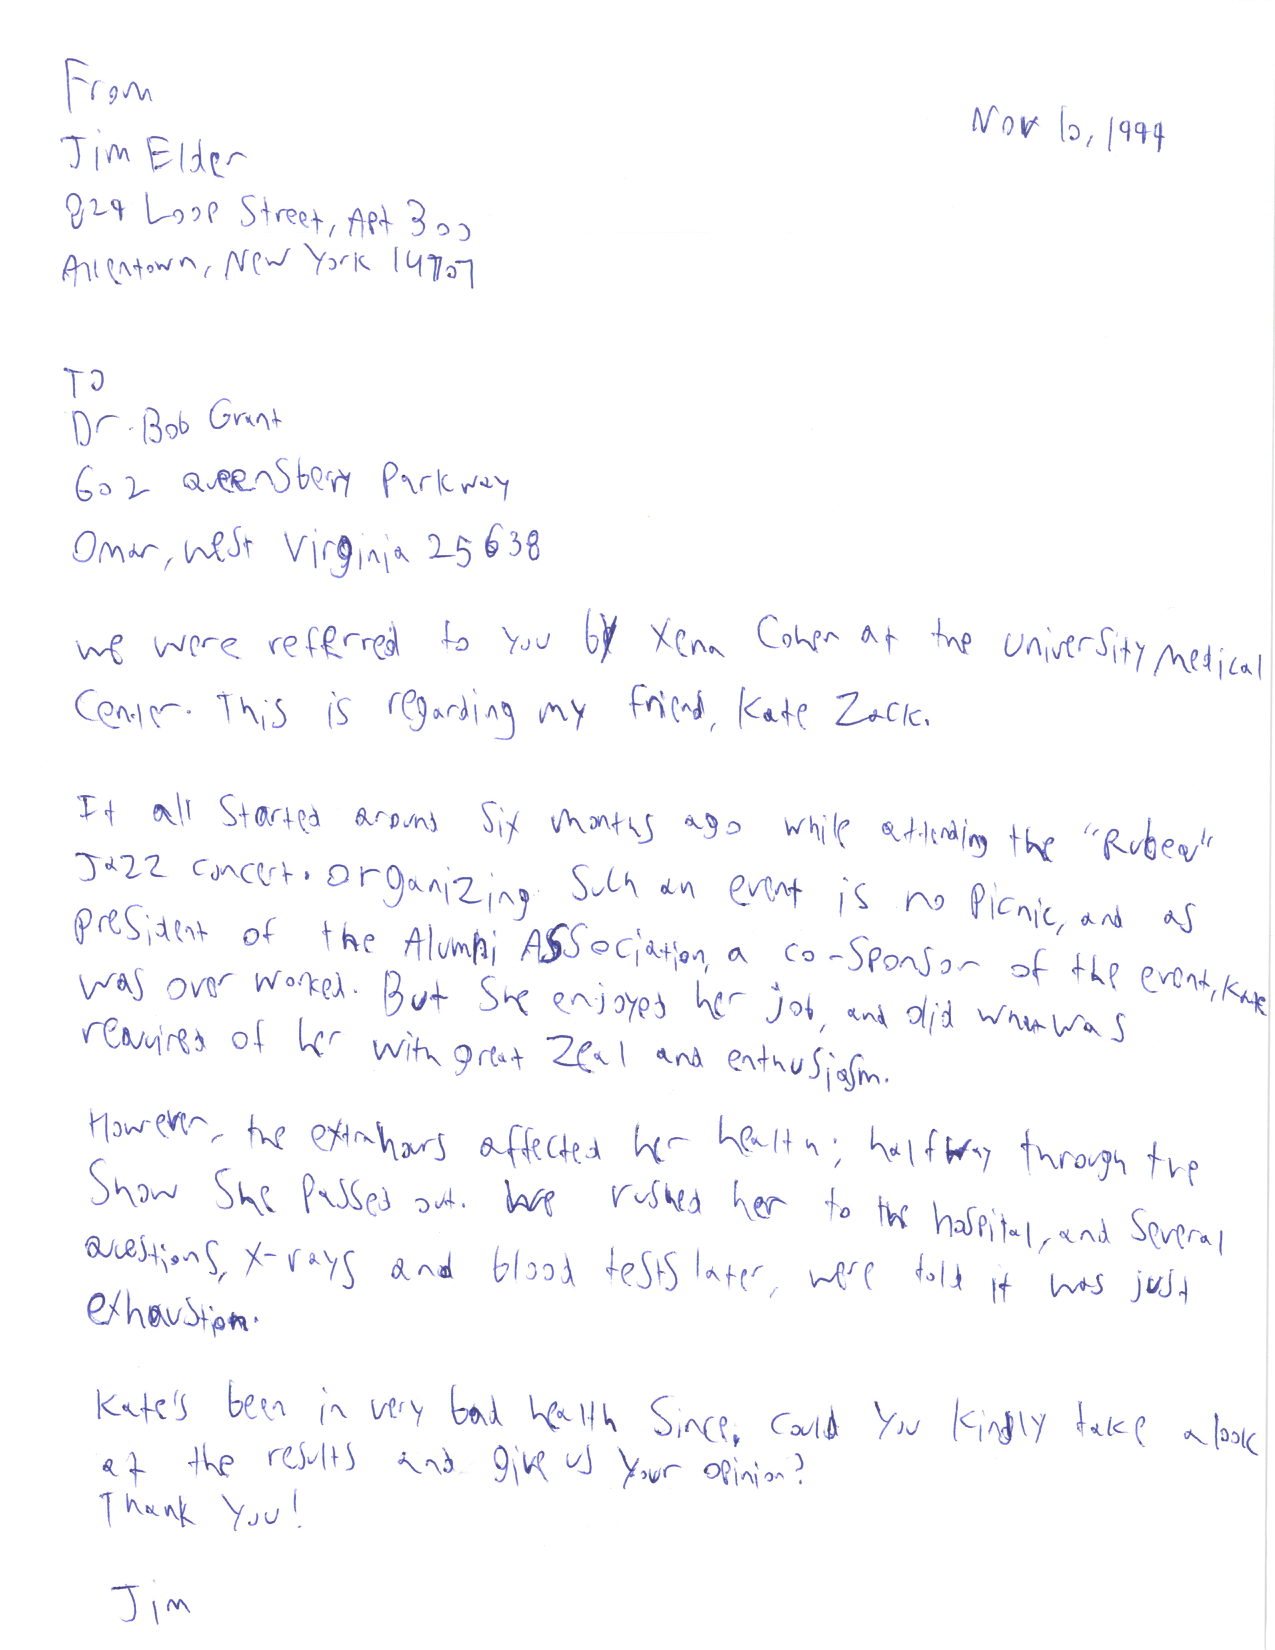 From
Nov 10, 1999
Jim Elder
829 Loop Street, Apt 300
Allentown, New York 14707
TO
Dr. Bob Grant
602 Queensberry Parkway
Omar, West Virginia 25638
We were referred to you by Xena Cohen at the University Medical
Center. This is regarding my friend, Kate Zack.
It all started around six months ago while attending the "Rubeq"
Jazz concert. Organizing such an event is no picnic, and as
President of the Alumni Association, a co-sponsor of the event, Kate
was overworked. But she enjoyed her job, and did what was
required of her with great zeal and enthusiasm.
However, the extra hours affected her health; halfway through the
show she passed out. We rushed her to the hospital, and several
questions, x-rays and blood tests later, were told it was just
exhaustion.
Kate's been in very bad health since. Could you kindly take a look
at the results and give us your opinion?
Thank you!
Jim